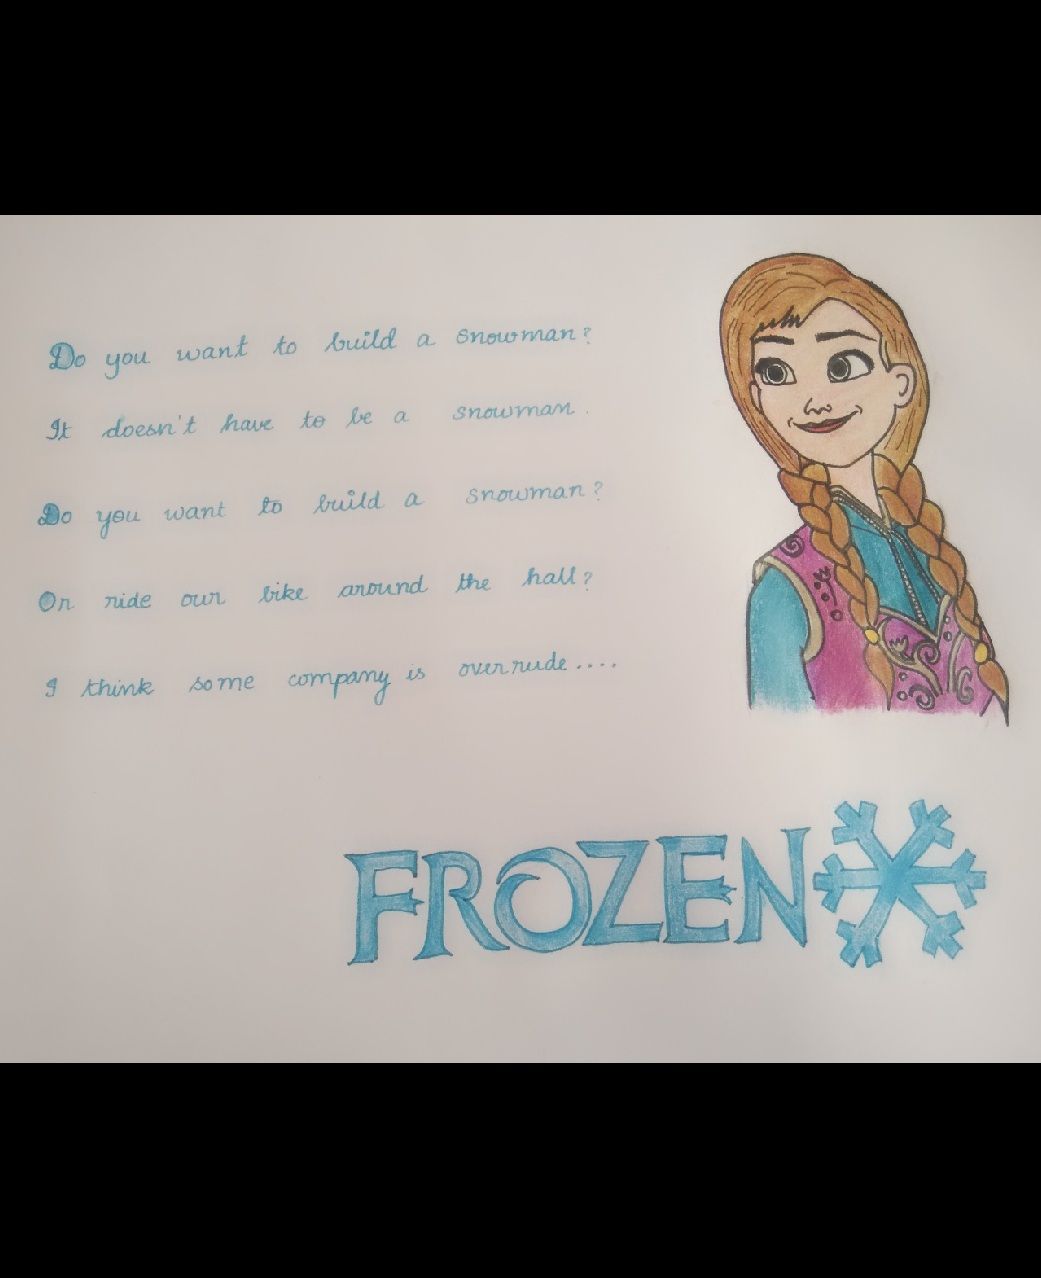 Do you want to build a snowman?
It doesn't have to be a snowman.
Do you want to build a snowman?
Or ride our bike around the hall?
I think some company is overrude....
FROZEN